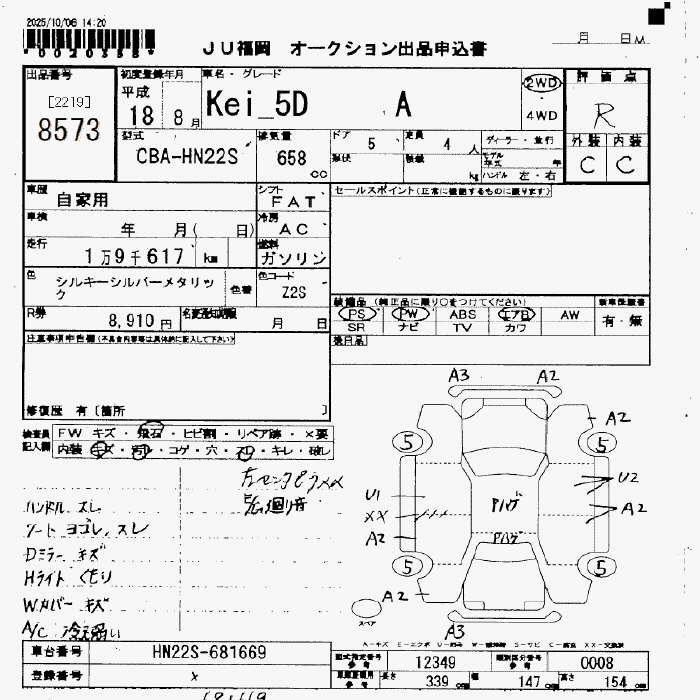 2025/10/06 14:20
*0020358*
JU福岡 オークション出品申込書
月 日 M
出品番号
[2219]
8573
初度登録年月
平成
18 8月
車名・グレード
Kei_5D A
2WD
4WD
評価点
R
外装 内装
C C
型式
CBA-HN22S
排気量
658
cc
ドア 5
定員 4 人
形状
積載 kg
ディーラー・並行
モデル年式 年
ハンドル 左・右
車歴
自家用
シフト
FAT
セールスポイント(正常に機能するものに限ります)
車検
年 月( 日)
冷房
AC
走行
1万9千617 km
燃料
ガソリン
色
シルキーシルバーメタリック
色替
色コード
Z2S
装備品 (純正品に限り○をつけてください)
PS PW ABS エアB AW
SR ナビ TV カワ
新車保証書
有・無
R券
8,910 円
名変登録期限
月 日
後日品
注意事項申告欄(不具合内容等は具体的に記入して下さい)
修復歴 有〔箇所 〕
検査員記入欄
FW キズ・飛石・ヒビ割・リペア跡・×要
内装 キズ・汚れ・コゲ・穴・スレ・キレ・破レ
ハンドル スレ
シート ヨゴレ、スレ
Dミラー キズ
Hライト くもり
Wカバー キズ
A/C 冷え弱い
左センタピラXX
A3 A2
A2
5 5
U1
XX
A2
Pハゲ
Pハゲ
U2
A2
5 5
A2
A3
スペア
車台番号
HN22S-681669
登録番号
×
型式指定番号 参考
12349
類別区分番号 参考
0008
長さ 339 cm
幅 147 cm
高さ 154 cm